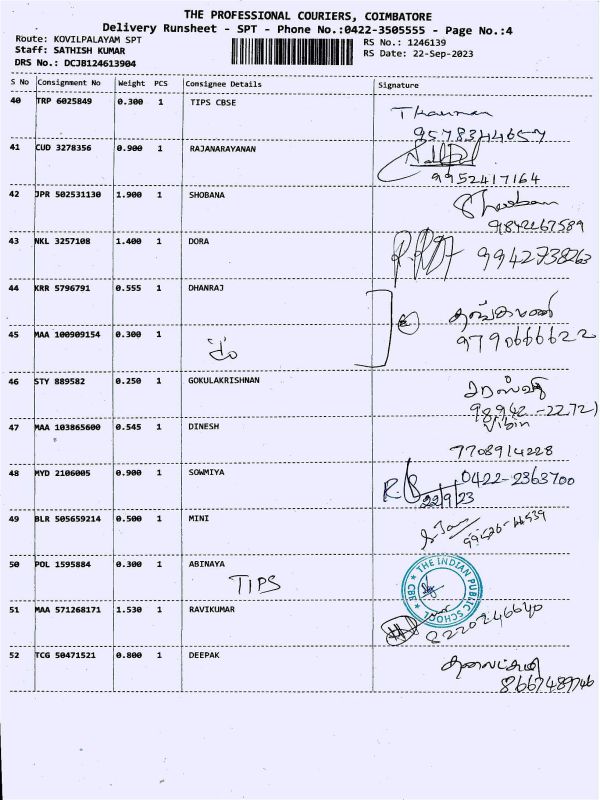 THE PROFESSIONAL COURIERS, COIMBATORE
Delivery Runsheet - SPT - Phone No.:0422-3505555 - Page No.:4
Route: KOVILPALAYAM SPT
Staff: SATHISH KUMAR
DRS No.: DCJB124613904
RS No.: 1246139
RS Date: 22-Sep-2023
S No Consignment No Weight PCS Consignee Details Signature
40 TRP 6025849 0.300 1 TIPS CBSE
9578344657
41 CUD 3278356 0.900 1 RAJANARAYANAN
9952417164
42 JPR 502531130 1.900 1 SHOBANA
9842267589
43 NKL 3257108 1.400 1 DORA
9942738263
44 KRR 5796791 0.555 1 DHANRAJ
தங்கமணி
9790666622
45 MAA 100909154 0.300 1
46 STY 889582 0.250 1 GOKULAKRISHNAN
98942-22721
47 MAA 103865600 0.545 1 DINESH
Vibin
7708914228
48 MYD 2106005 0.900 1 SOWMIYA
0422-2363700
22/9/23
49 BLR 505659214 0.500 1 MINI
50 POL 1595884 0.300 1 ABINAYA
TIPS
THE INDIAN PUBLIC SCHOOL CBE
51 MAA 571268171 1.530 1 RAVIKUMAR
52 TCG 50471521 0.800 1 DEEPAK
8667489746